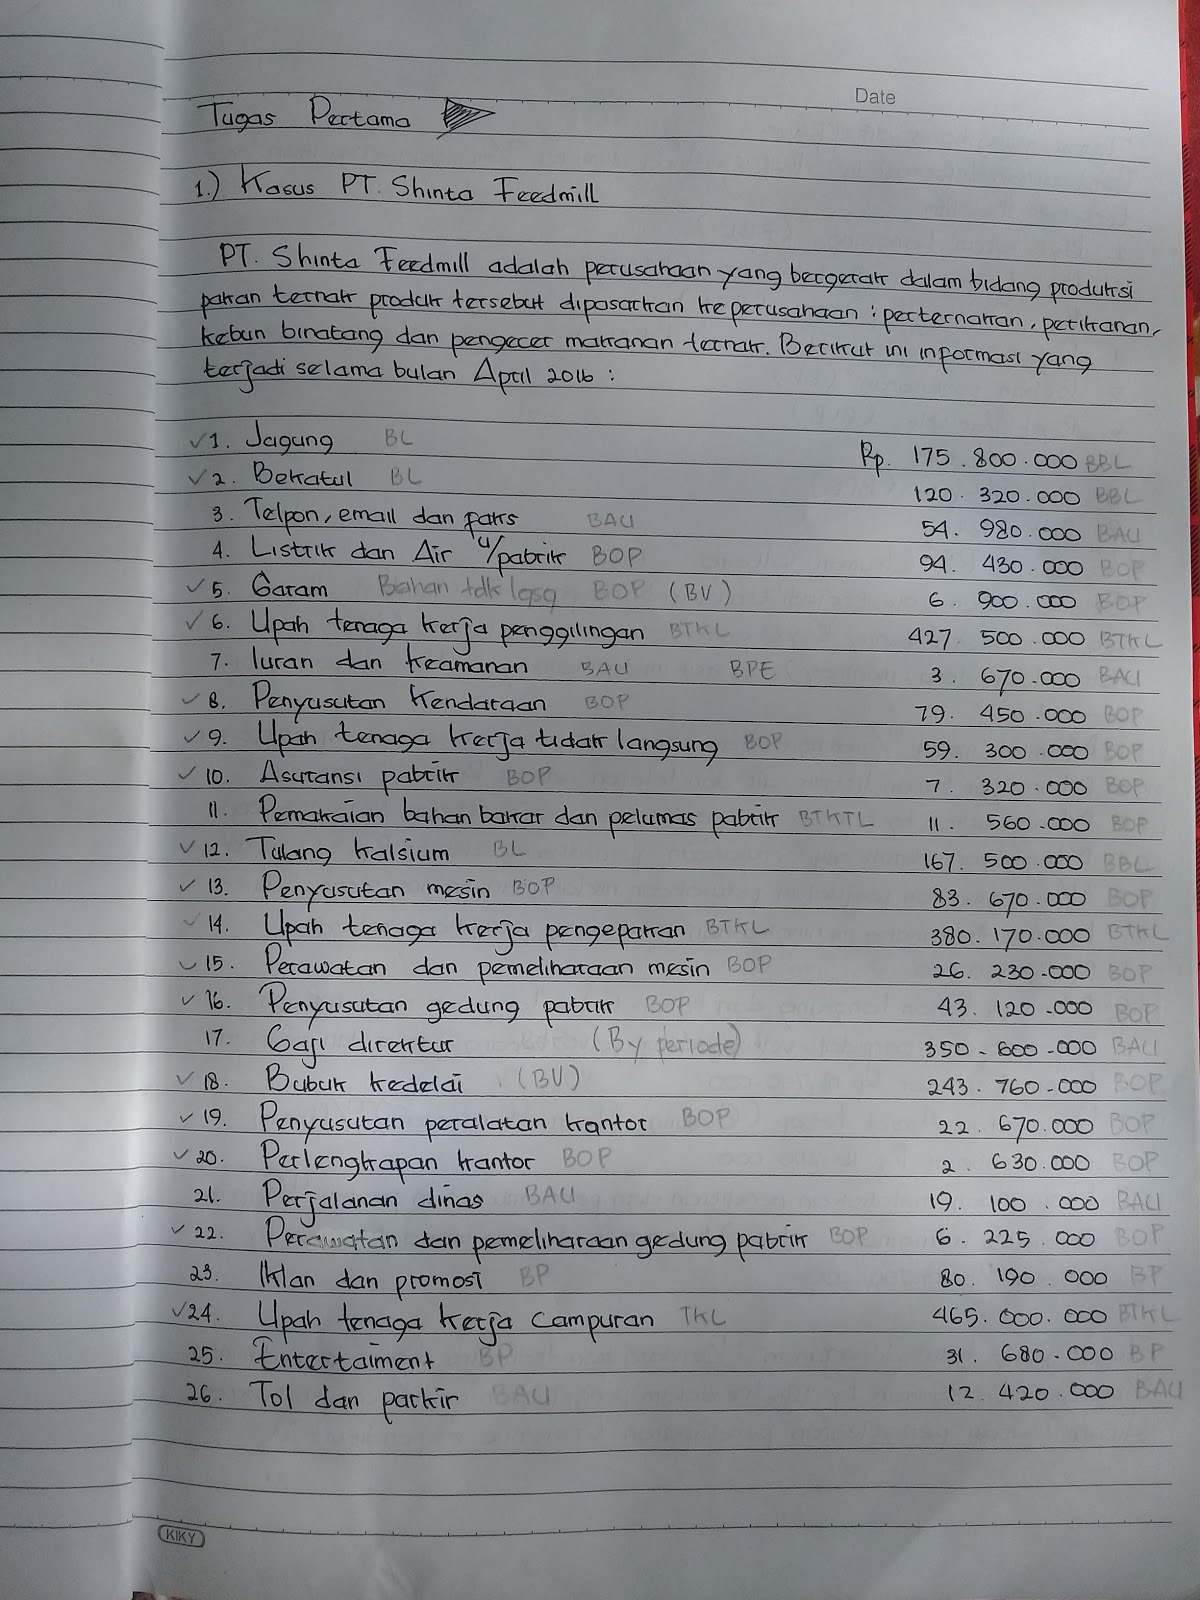 Date
Tugas Pertama
1.) Kasus PT. Shinta Feedmill
PT. Shinta Feedmill adalah perusahaan yang bergerak dalam bidang produksi
pakan ternak produk tersebut dipasarkan keperusahaan : perternakan, perikanan,
kebun binatang dan pengecer makanan ternak. Berikut ini informasi yang
terjadi selama bulan April 2016 :
✓1. Jagung BL Rp. 175.800.000 BBL
✓2. Bekatul BL 120.320.000 BBL
3. Telpon, email dan faks BAU 54.980.000 BAU
4. Listrik dan Air u/pabrik BOP 94.430.000 BOP
✓5. Garam Bahan tdk lgsg BOP (BV) 6.900.000 BOP
✓6. Upah tenaga kerja penggilingan BTKL 427.500.000 BTKL
7. Iuran dan keamanan BAU BPE 3.670.000 BAU
✓8. Penyusutan Kendaraan BOP 79.450.000 BOP
✓9. Upah tenaga kerja tidak langsung BOP 59.300.000 BOP
✓10. Asuransi pabrik BOP 7.320.000 BOP
11. Pemakaian bahan bakar dan pelumas pabrik BTKTL 11.560.000 BOP
✓12. Tulang kalsium BL 167.500.000 BBL
✓13. Penyusutan mesin BOP 83.670.000 BOP
✓14. Upah tenaga kerja pengepakan BTKL 380.170.000 BTKL
✓15. Perawatan dan pemeliharaan mesin BOP 26.230.000 BOP
✓16. Penyusutan gedung pabrik BOP 43.120.000 BOP
17. Gaji direktur (By periode) 350.600.000 BAU
✓18. Bubuk kedelai (BV) 243.760.000 BOP
✓19. Penyusutan peralatan kantor BOP 22.670.000 BOP
✓20. Perlengkapan kantor BOP 2.630.000 BOP
21. Perjalanan dinas BAU 19.100.000 BAU
✓22. Perawatan dan pemeliharaan gedung pabrik BOP 6.225.000 BOP
23. Iklan dan promosi BP 80.190.000 BP
✓24. Upah tenaga kerja campuran TKL 465.000.000 BTKL
25. Entertaiment BP 31.680.000 BP
26. Tol dan parkir BAU 12.420.000 BAU
KIKY